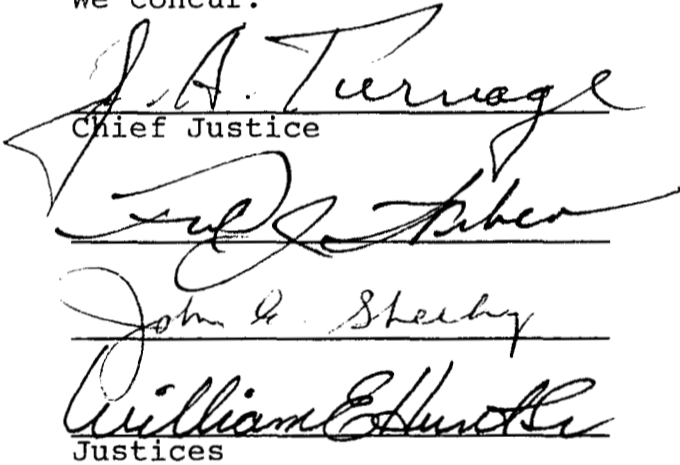 We concur:
J. A. Turnage
Chief Justice
Fred J. Weber
John C. Sheehy
William E. Hunt Sr
Justices